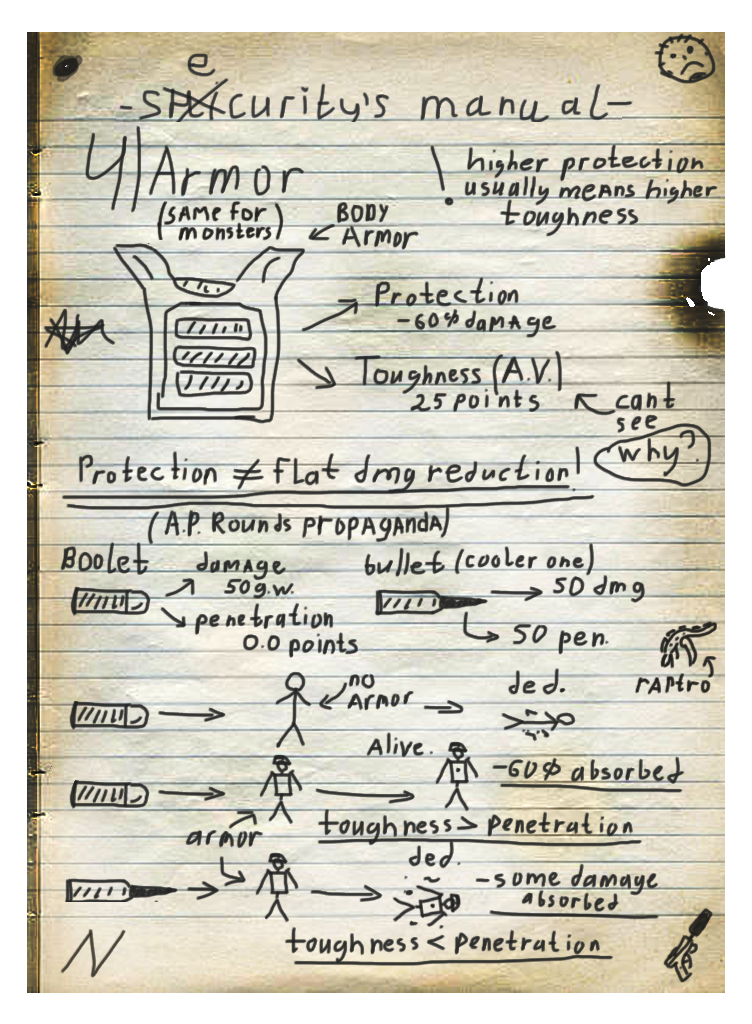 e
-security's manual-
4) Armor
(SAME for monsters)
BODY
Armor
! higher protection
usually means higher
toughness
Protection
-60% damage
Toughness (A.V.)
25 points
cant
see
why?
Protection ≠ flat dmg reduction!
(A.P. Rounds propaganda)
Boolet
damage
50 g.w.
penetration
0.0 points
bullet (cooler one)
50 dmg
50 pen.
rAptro
no
Armor
ded.
Alive.
-60% absorbed
armor
toughness > penetration
ded.
-some damage
absorbed
toughness < penetration
N